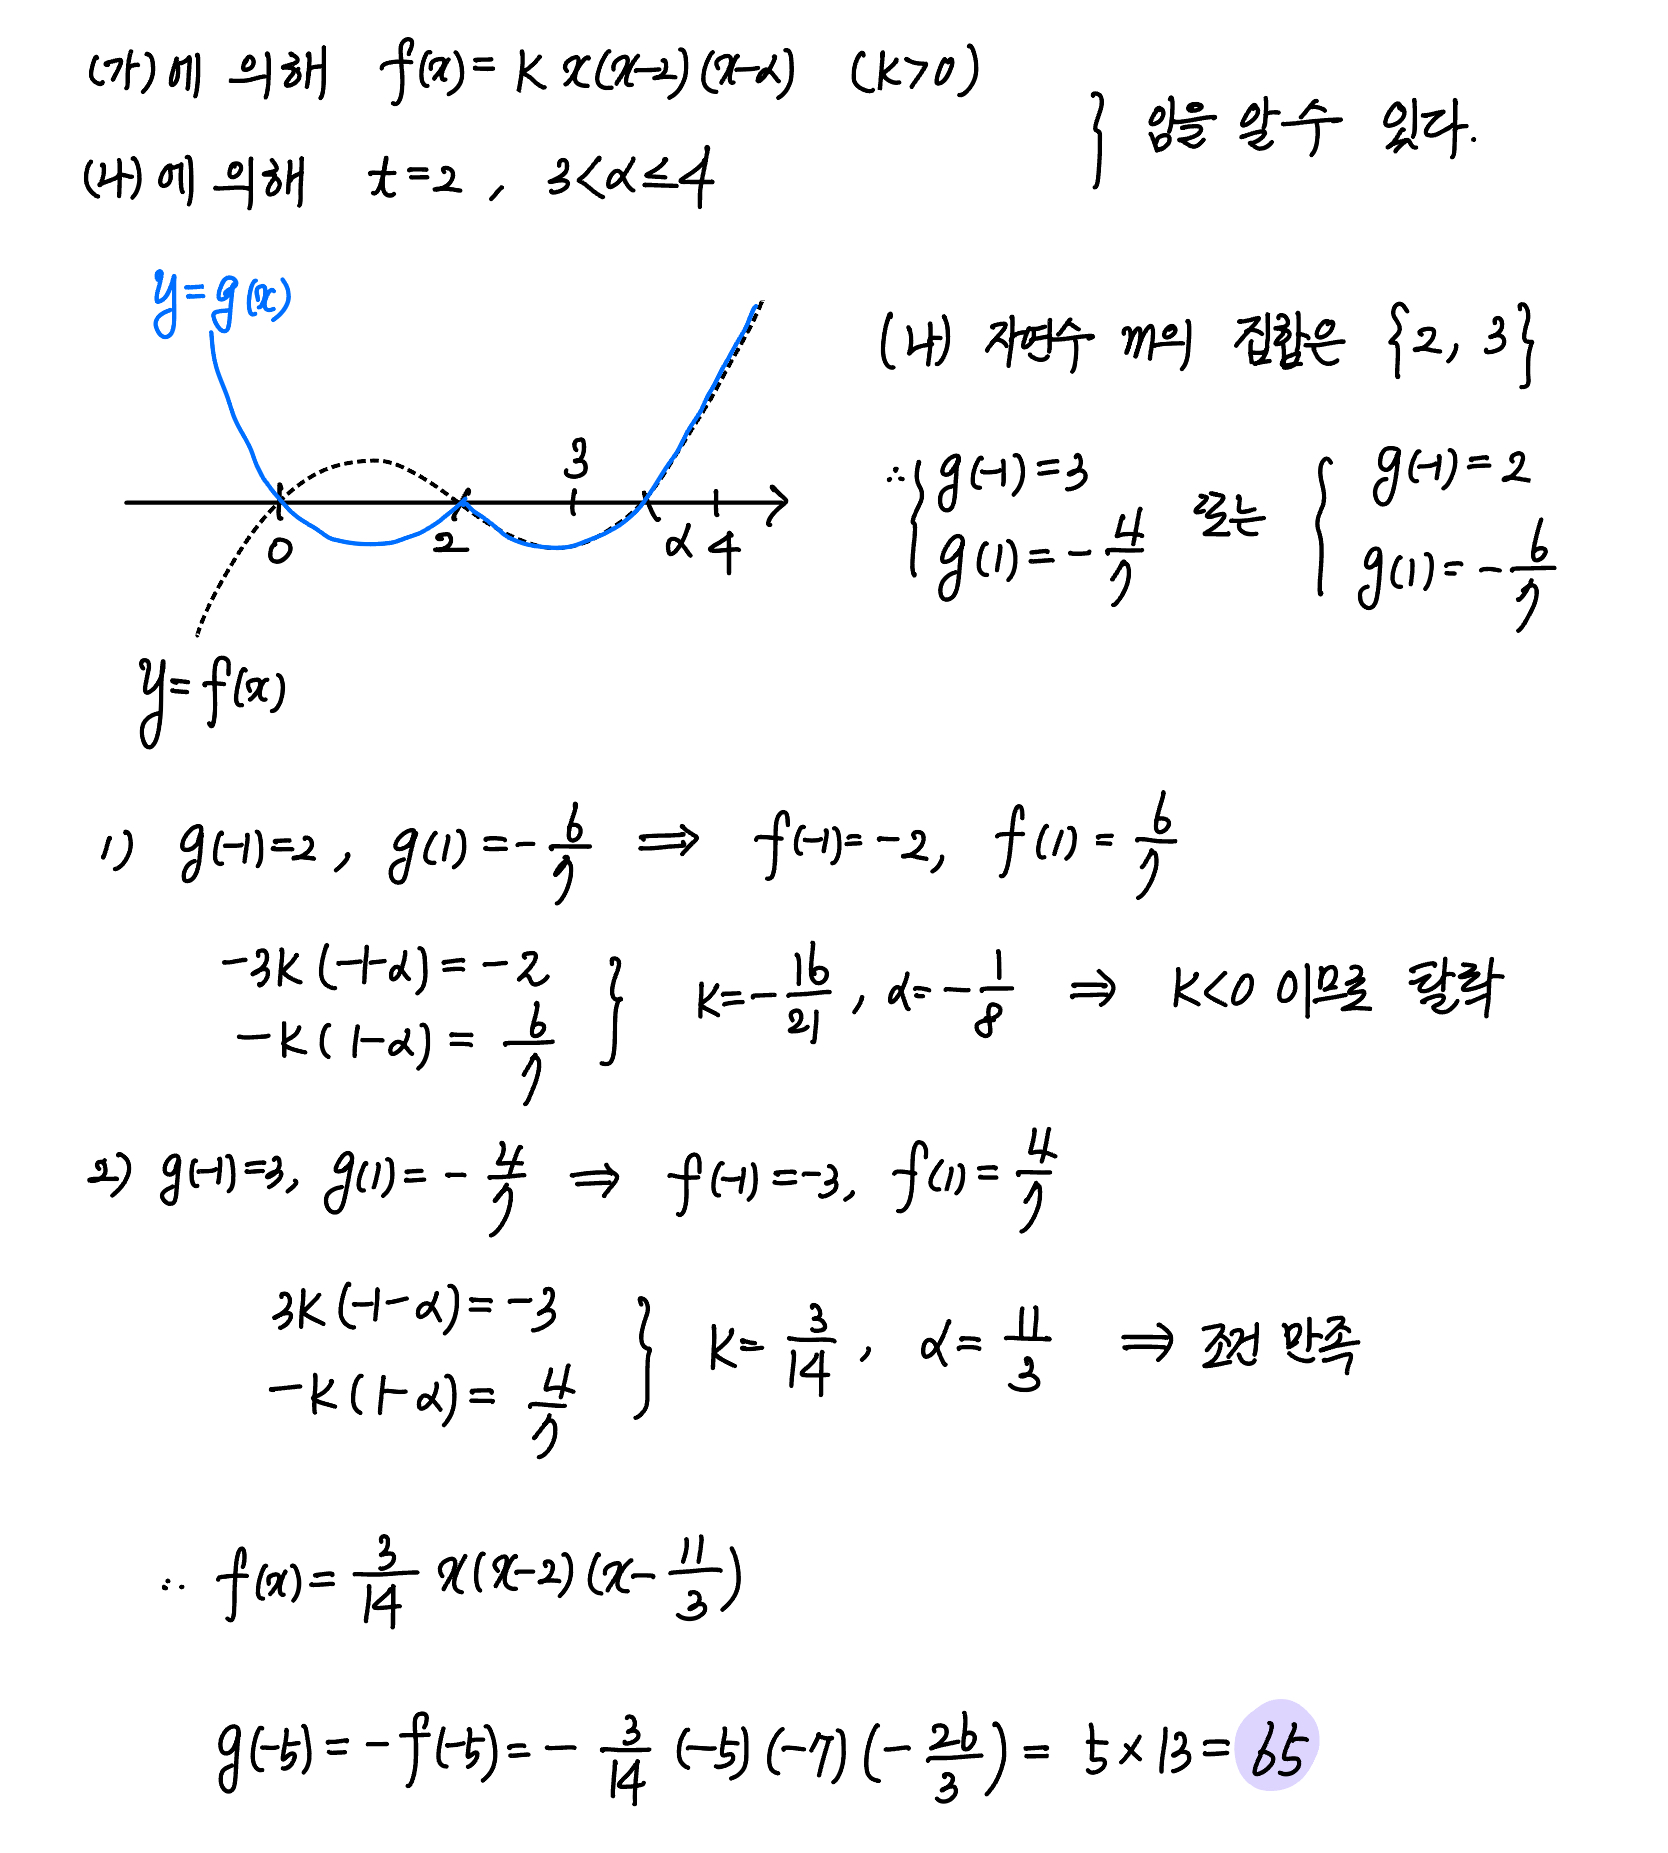 (가)에 의해 f(x)= k x(x-2)(x-α) (k>0)
} 임을 알 수 있다.
(나)에 의해 t=2 , 3<α≤4
y=g(x)
(나) 자연수 m의 집합은 {2, 3}
3
0 2 α 4
y=f(x)
∴ { g(-1)=3 또는 { g(-1)=2
g(1)=-4/7 g(1)=-6/7
1) g(-1)=2, g(1)=-6/7 ⇒ f(-1)=-2, f(1)=6/7
-3k(-1-α)=-2
-k(1-α)=6/7 } k=-16/21, α=-1/8 ⇒ k<0 이므로 탈락
2) g(-1)=3, g(1)=-4/7 ⇒ f(-1)=-3, f(1)=4/7
3k(-1-α)=-3
-k(1-α)=4/7 } k=3/14, α=11/3 ⇒ 조건 만족
∴ f(x)=3/14 x(x-2)(x-11/3)
g(-5)=-f(-5)=-3/14 (-5)(-7)(-26/3)=5×13=65